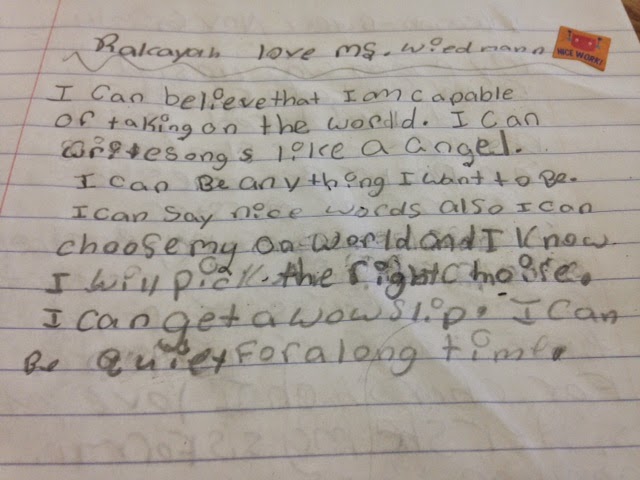 Ralcayah love ms. wiedmann
NICE WORK!
I can believe that I am capable
of taking on the worlld. I can
write songs like a angel.
I can Be any thing I want to Be.
I can say nice words also I can
choose my on world and I know
I will pick the right choise.
I can get a wow slip. I can
Be quiey for a long time.